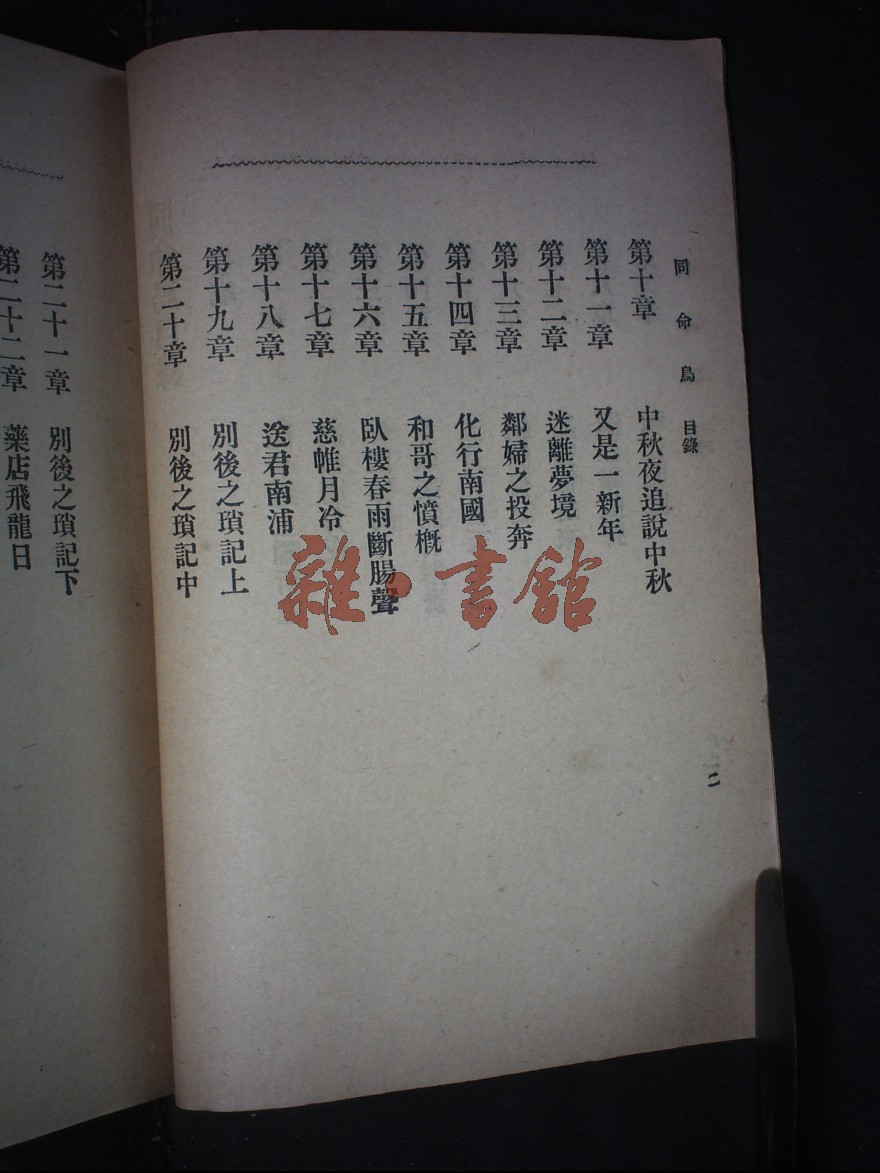 同命鳥 目錄
第十章 中秋夜追說中秋
第十一章 又是一新年
第十二章 迷離夢境
第十三章 鄰婦之投奔
第十四章 化行南國
第十五章 和哥之憤概
第十六章 臥樓春雨斷腸聲
第十七章 慈帷月冷
第十八章 送君南浦
第十九章 別後之瑣記上
第二十章 別後之瑣記中
二
第二十一章 別後之瑣記下
第二十二章 藥店飛龍日
雜·書館